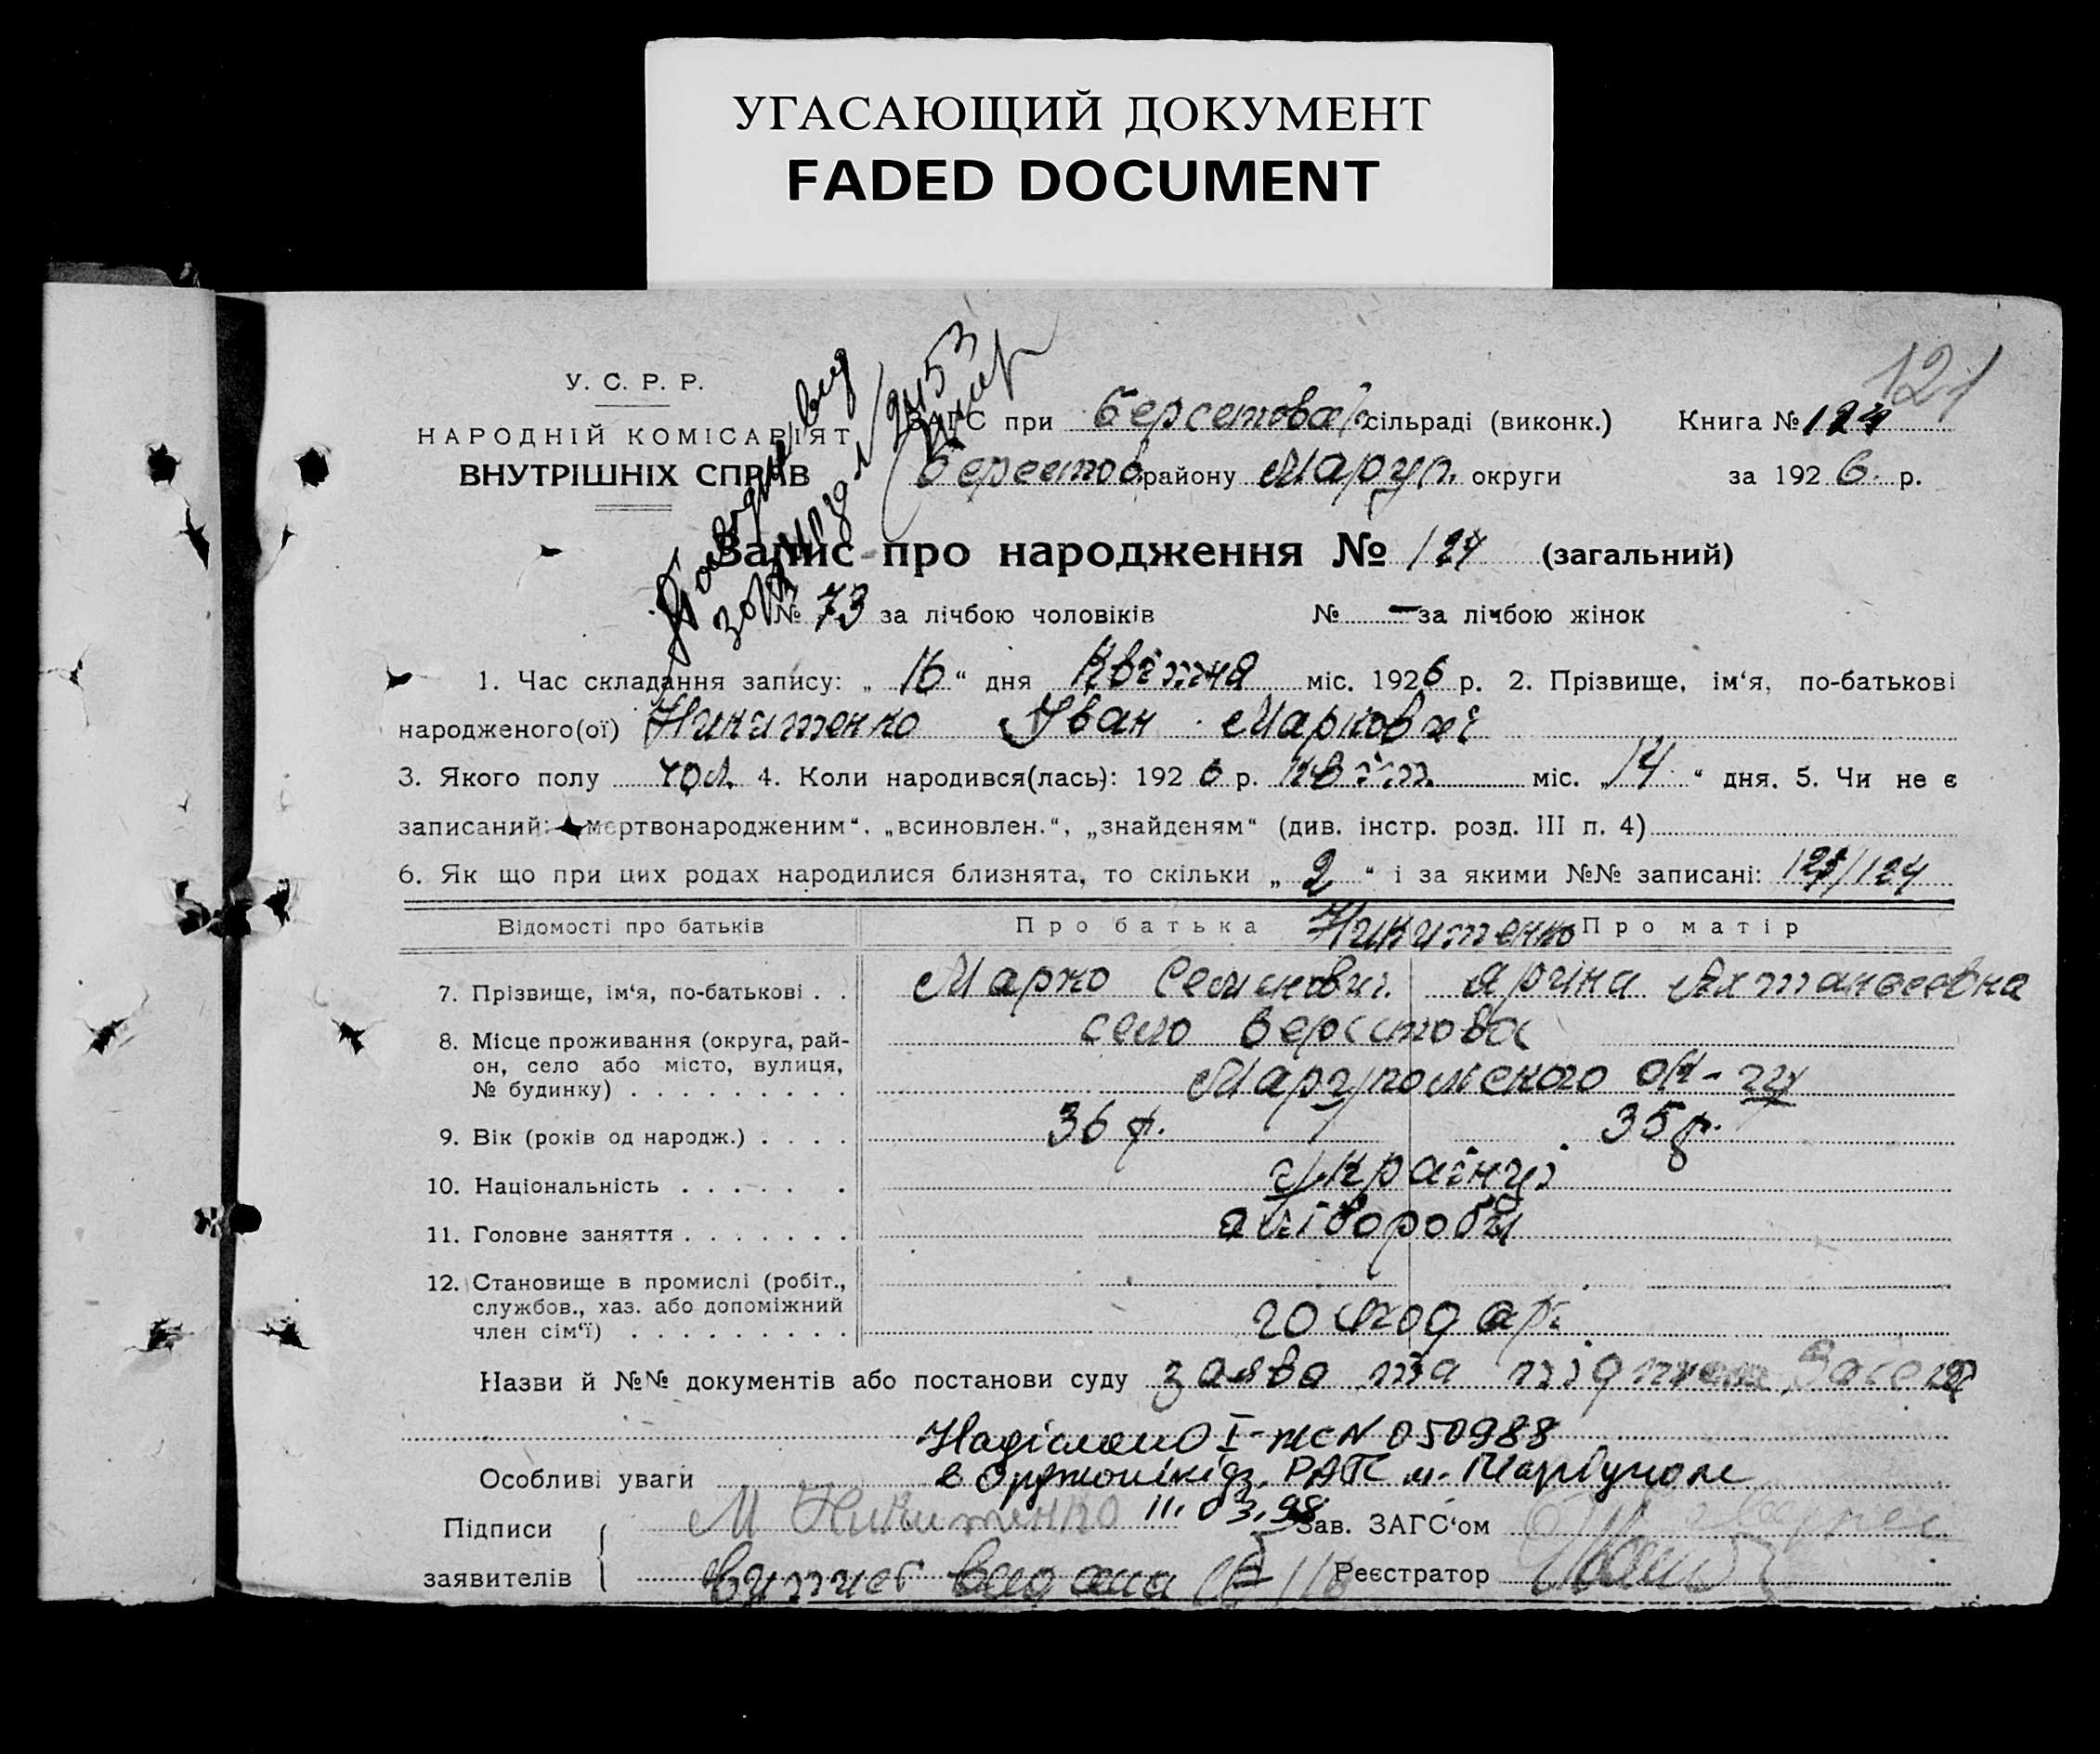 УГАСАЮЩИЙ ДОКУМЕНТ
FADED DOCUMENT
121
У. С. Р. Р.
НАРОДНІЙ КОМІСАРІЯТ
ВНУТРІШНІХ СПРАВ
ЗАГС при Берестовск. сільраді (виконк.) Книга № 124
Берестов. району Маруп. округи за 1926 р.
Запис про народження № 124 (загальний)
№ 73 за лічбою чоловіків № — за лічбою жінок
1. Час складання запису: „16“ дня Квітня міс. 1926 р. 2. Прізвище, ім‘я, по-батькові
народженого(ої) Никитенко Іван Маркович
3. Якого полу чол. 4. Коли народився(лась): 1926 р. Квітн міс. „14“ дня. 5. Чи не є
записаний: „мертвонародженим“, „всиновлен.“, „знайденям“ (див. інстр. розд. III п. 4)
6. Як що при цих родах народилися близнята, то скільки „2“ і за якими №№ записані: 123/124
Відомості про батьків Про батька Никитенко Про матір
7. Прізвище, ім‘я, по-батькові . . Марко Семенович. Ярина
8. Місце проживання (округа, рай- село Берестова
он, село або місто, вулиця,
№ будинку) . . . . . . . . . Марупольского ок-гу
9. Вік (років од народж.) . . . . 36 р. 35 р.
10. Національність . . . . . . українці
11. Головне заняття . . . . . . . хлібороби
12. Становище в промислі (робіт.,
службов., хаз. або допоміжний
член сім‘ї) . . . . . . . . . господарі
Назви й №№ документів або постанови суду заява та підписи
Надіслано I-ЖС N 050988
Особливі уваги в Орджонікідз. РАГС м. Маріуполе
11.03.98
Підписи М Никитенко Зав. ЗАГС‘ом
заявителів Витяг видана Реєстратор